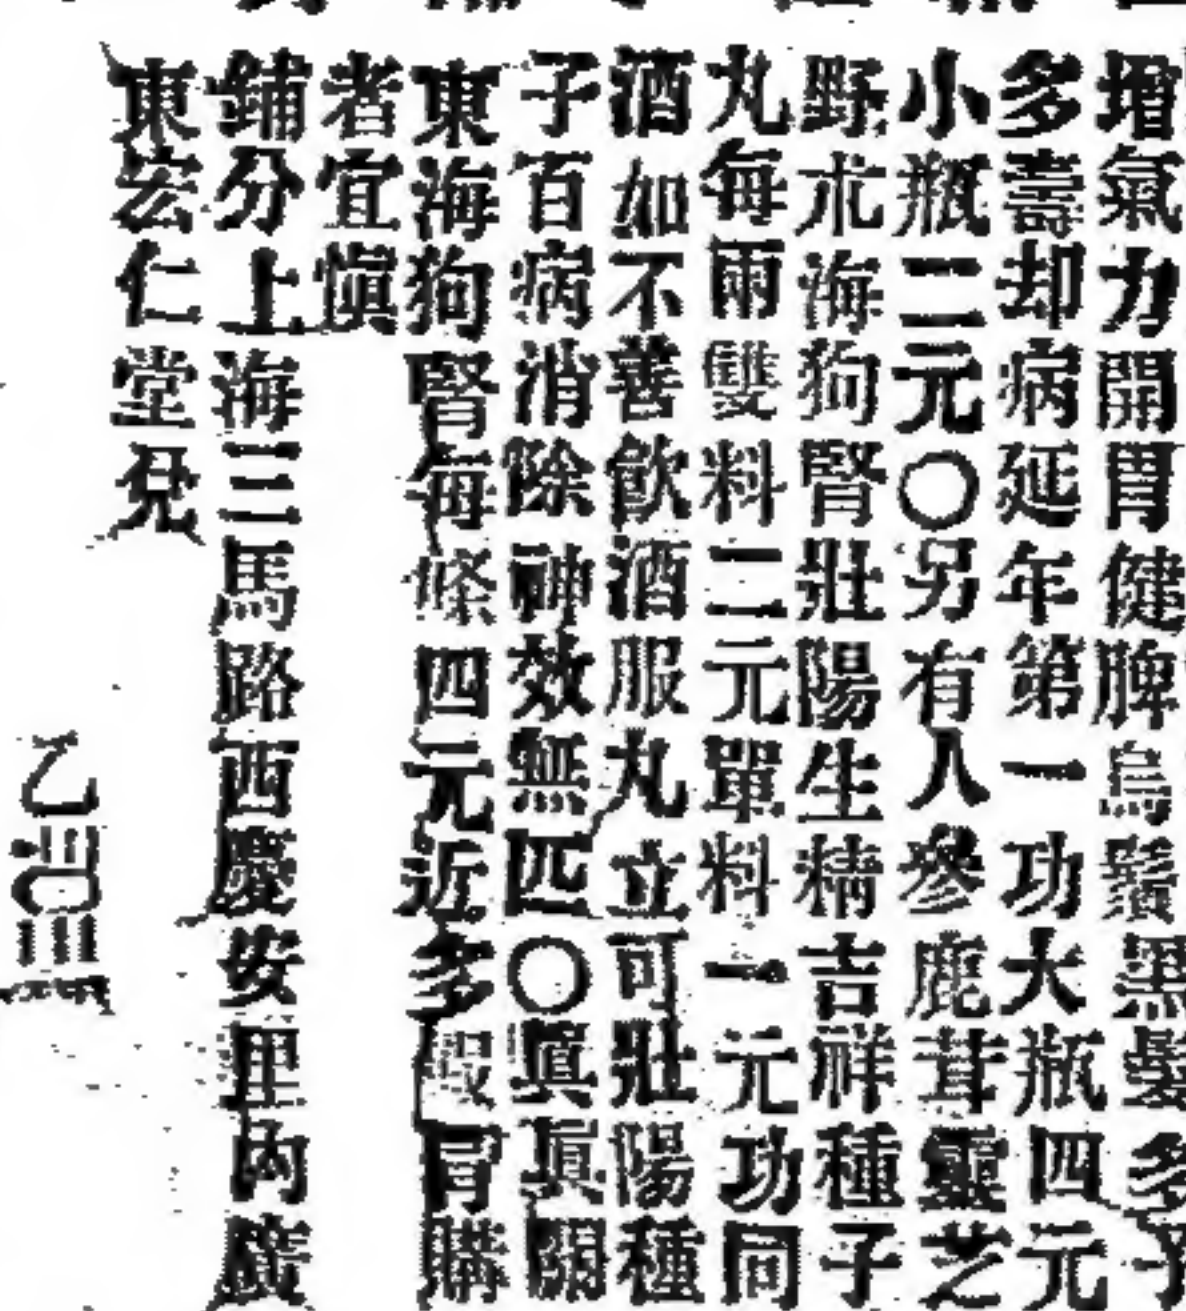 增氣力開胃健脾烏鬚黑髮多子
多壽却病延年第一功大瓶四元
小瓶二元〇另有人參鹿茸靈芝
野朮海狗腎壯陽生精吉祥種子
丸每兩雙料二元單料一元功同
酒如不善飲酒服丸立可壯陽種
子百病消除神效無匹〇眞眞關
東海狗腎每條四元近多假冒購
者宜愼
鋪分上海三馬路西慶安里內廣
東宏仁堂啓